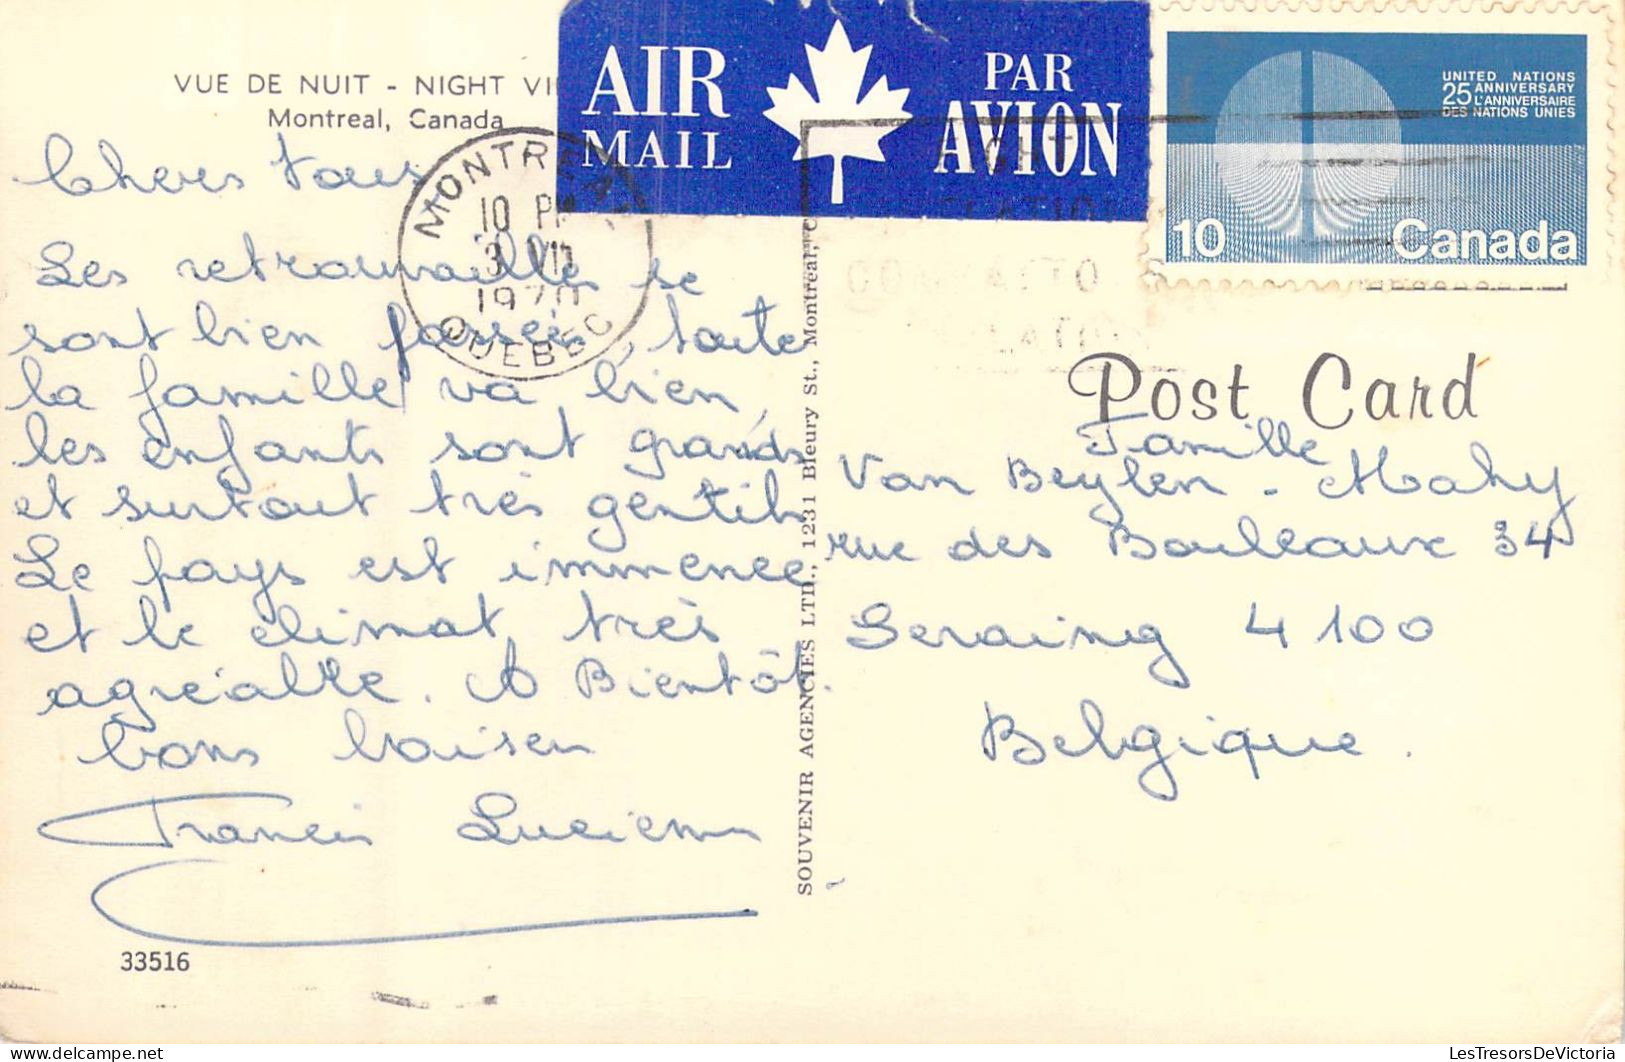 VUE DE NUIT - NIGHT VI
Montreal, Canada
AIR MAIL
PAR AVION
UNITED NATIONS
25 ANNIVERSARY
L'ANNIVERSAIRE
DES NATIONS UNIES
10 Canada
MONTREAL
10 PM
3 VII
1970
QUEBEC
Cheres tous
Les retrouvailles se
sont bien passés, toute
la famille va bien,
les enfants sont grands
et surtout très gentils
Le pays est immence
et le climat très
agréable. A Bientôt.
bons baisers
Francis Lucienne
33516
SOUVENIR AGENCIES LTD., 1231 Bleury St., Montreal, C
Post Card
Famille
Van Beylen - Mahy
rue des Bouleaux 34
Seraing 4100
Belgique.
LesTresorsDeVictoria